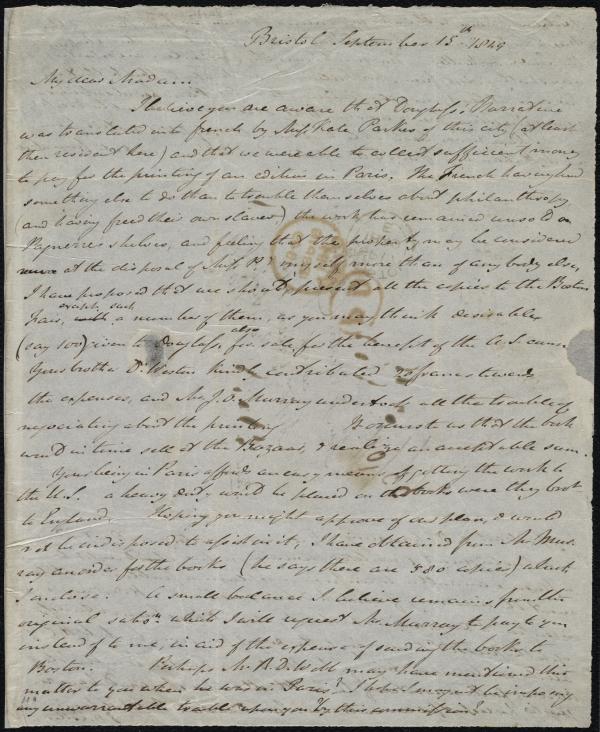 Bristol September 15th 1849
My dear Madam
I believe you are aware that Douglass' Narrative
was translated into french by Miss Kate Parkes of this city (at least
then resident here) and that we were able to collect sufficient money
to pay for the printing of an edition in Paris. The French having had
something else to do than to trouble themselves about philanthropy
(and having freed their own slaves) the work has remained unsold on
Pagnerre's shelves, and feeling that the property may be considered
more at the disposal of Miss P. & myself more than of any body else,
I have proposed that we should present all the copies to the Boston
Fair, except such a number of them, as you may think desirable
(say 100) given to Douglass, also for sale, for the benefit of the A. S. cause
Your brother D. Weston kindly contributed francs towards
the expenses, and Mr J. O. Murray undertook all the trouble of
negociating about the printing It occurs to us that the book
would in time sell at the Bazaar, & realize an acceptable sum.
You being in Paris affords an easy means of getting the work to
the U.S. a heavy duty would be placed on the books were they brot
to England. Hoping you might approve of our plan, & would
not be indisposed to assist in it, I have obtained from Mr Mur-
ray an order for the books (he says there are 580 copies) which
I enclose. A small balance I believe remains from the
original subsn which I will request Mr Murray to pay to you
instead of to me, in aid of the expense of sending the books to
Boston. Perhaps Mr R. D. Webb may have mentioned this
matter to you when he was in Paris? I hope I may not be imposing
any unwarrantable trouble upon you by this commission?